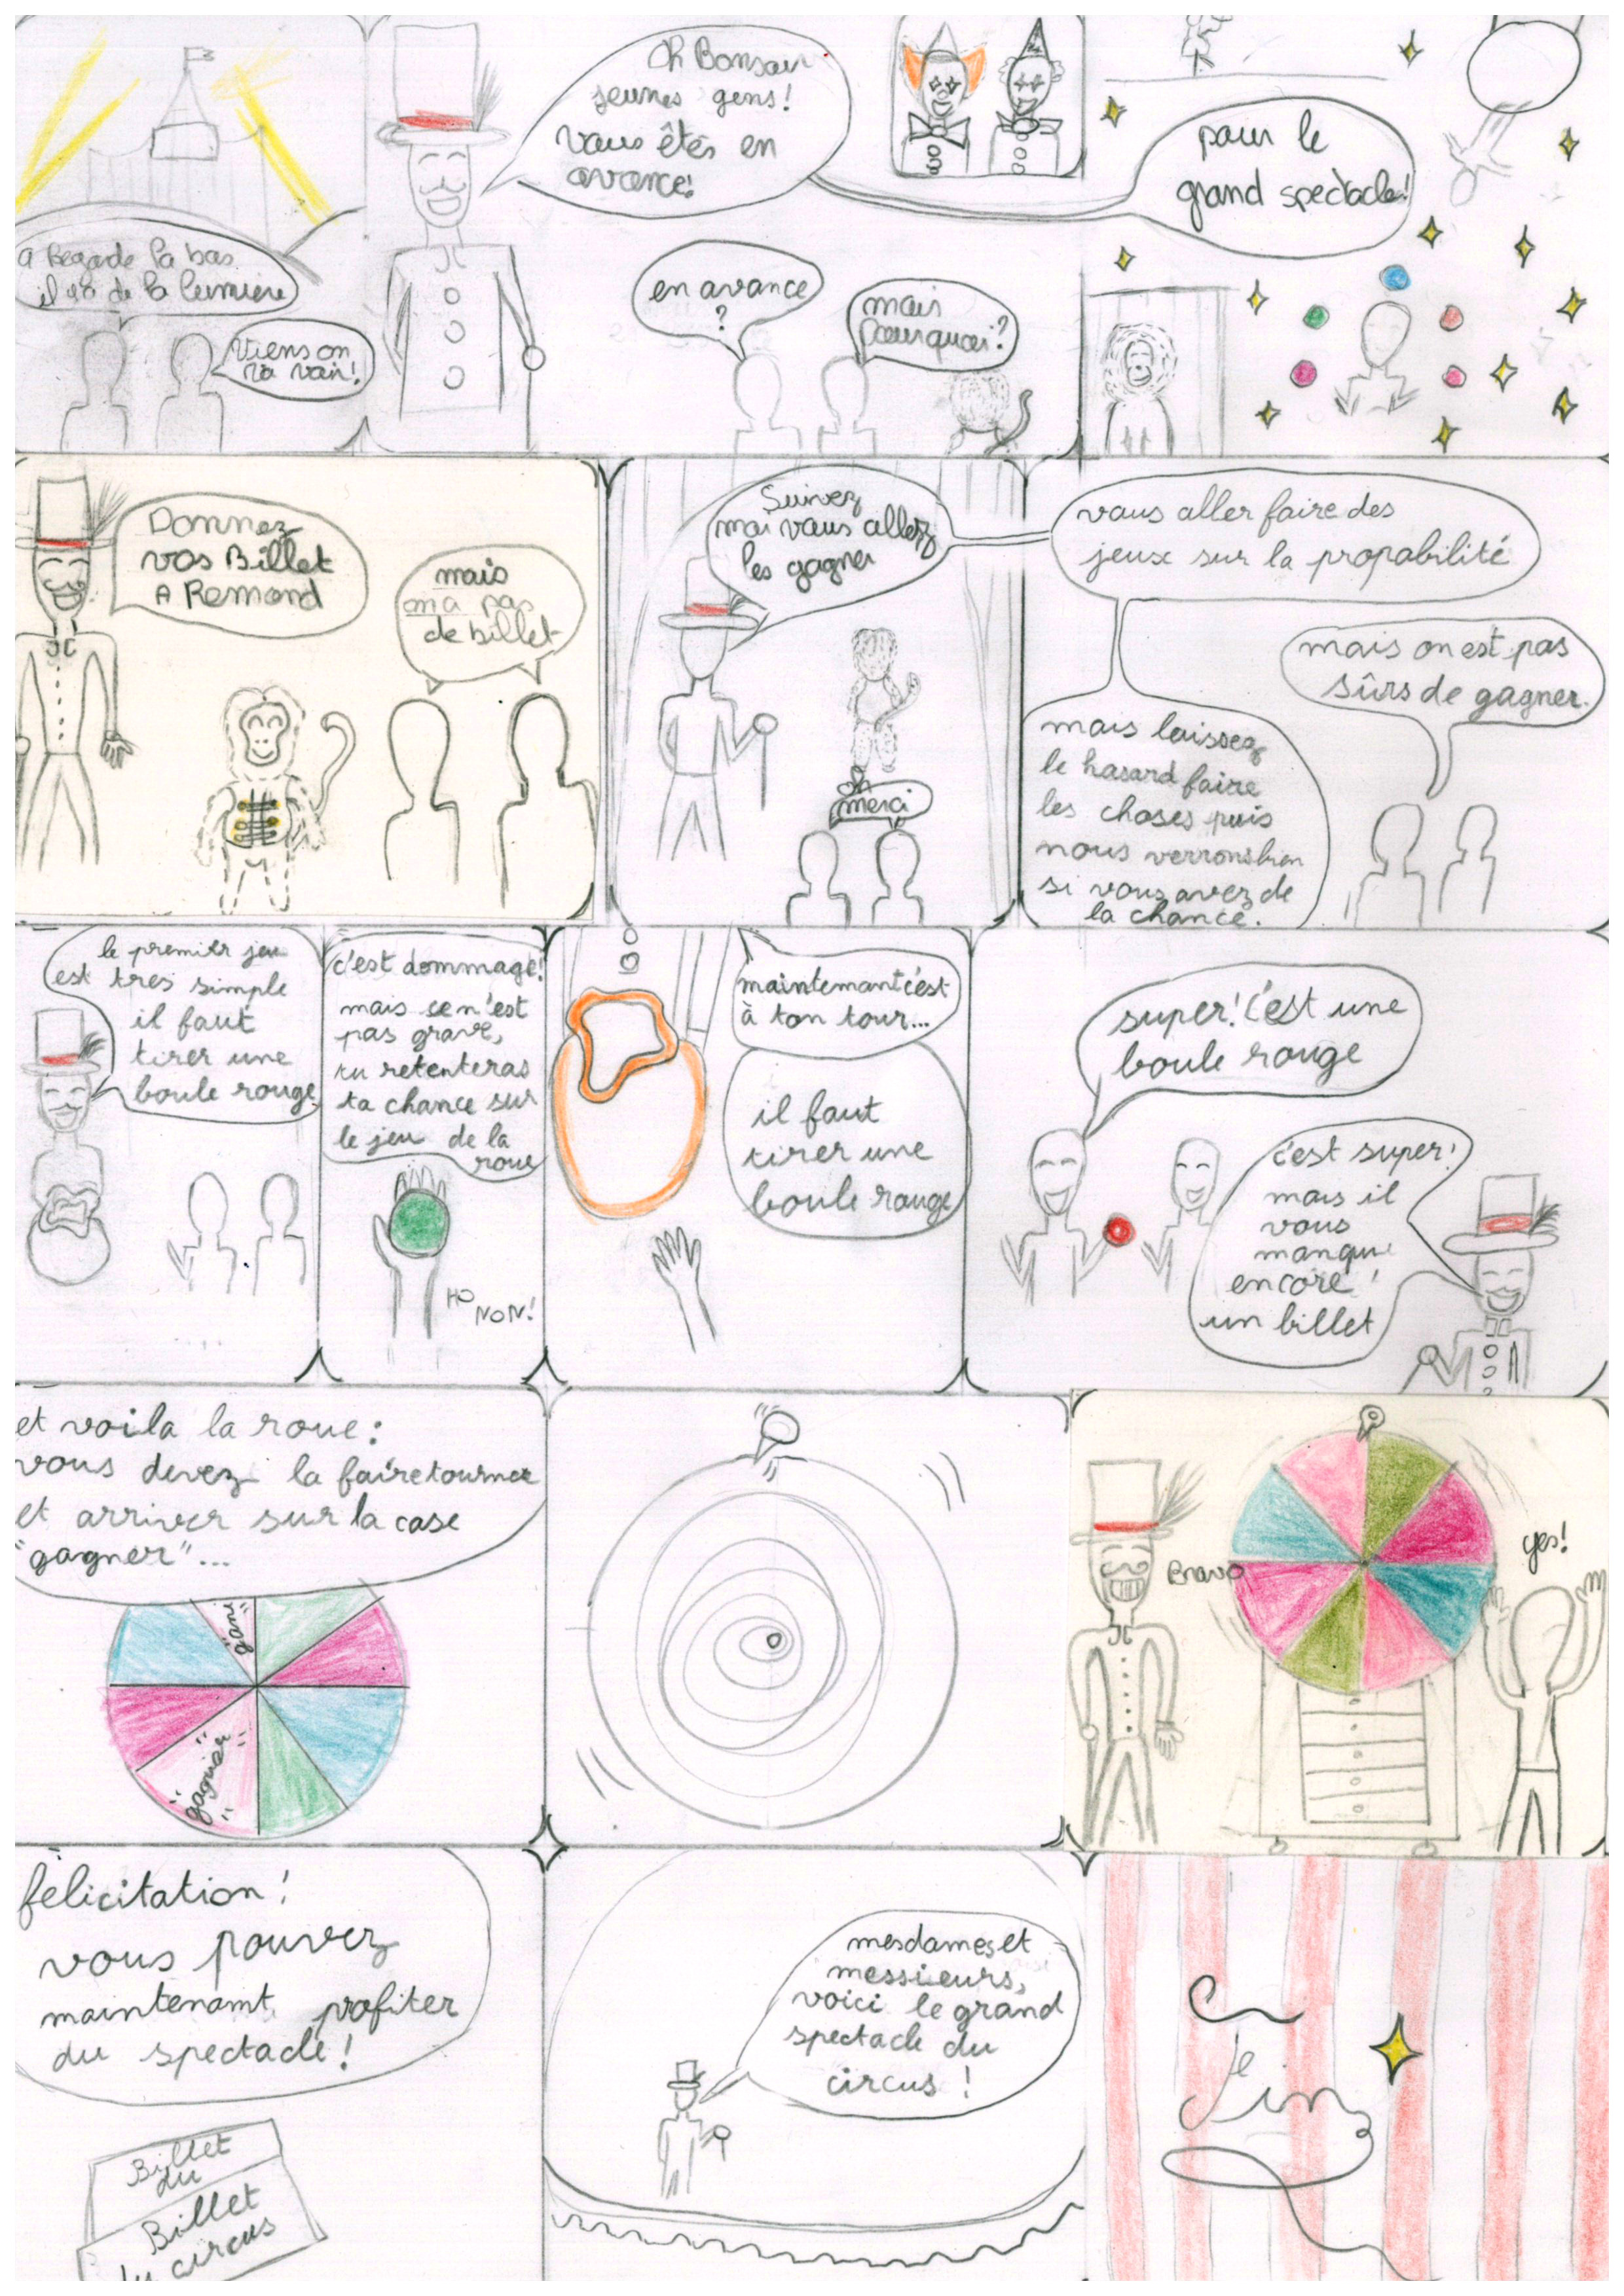 a Regarde la bas
il y a de la lumière
Viens on
va voir!
Oh Bonsoir
jeunes gens!
vous êtés en
avance!
pour le
grand spectacle!
en avance
?
mais
pourquoi?
Donnez
vos Billet
A Remond
mais
on a pas
de billet
Suivez
moi vous allez
les gagner
oh
merci
vous aller faire des
jeux sur la propabilité
mais on est pas
sûrs de gagner.
mais laissez
le hasard faire
les choses puis
nous verrons bien
si vous avez de
la chance.
le premier jeu
est très simple
il faut
tirer une
boule rouge
c'est dommage!
mais ce n'est
pas grave,
tu retenteras
ta chance sur
le jeu de la
roue
HO
NON!
maintenant c'est
à ton tour...
il faut
tirer une
boule rouge
super! c'est une
boule rouge
c'est super!
mais il
vous
manque
encore !
un billet
et voila la roue:
vous devez la faire tourner
et arriver sur la case
"gagner"...
"gagner"
Bravo
yes!
félicitation!
vous pouvez
maintenant profiter
du spectacle!
Billet
du
Billet
du circus
mesdames et
messieurs,
voici le grand
spectacle du
circus !
Fin